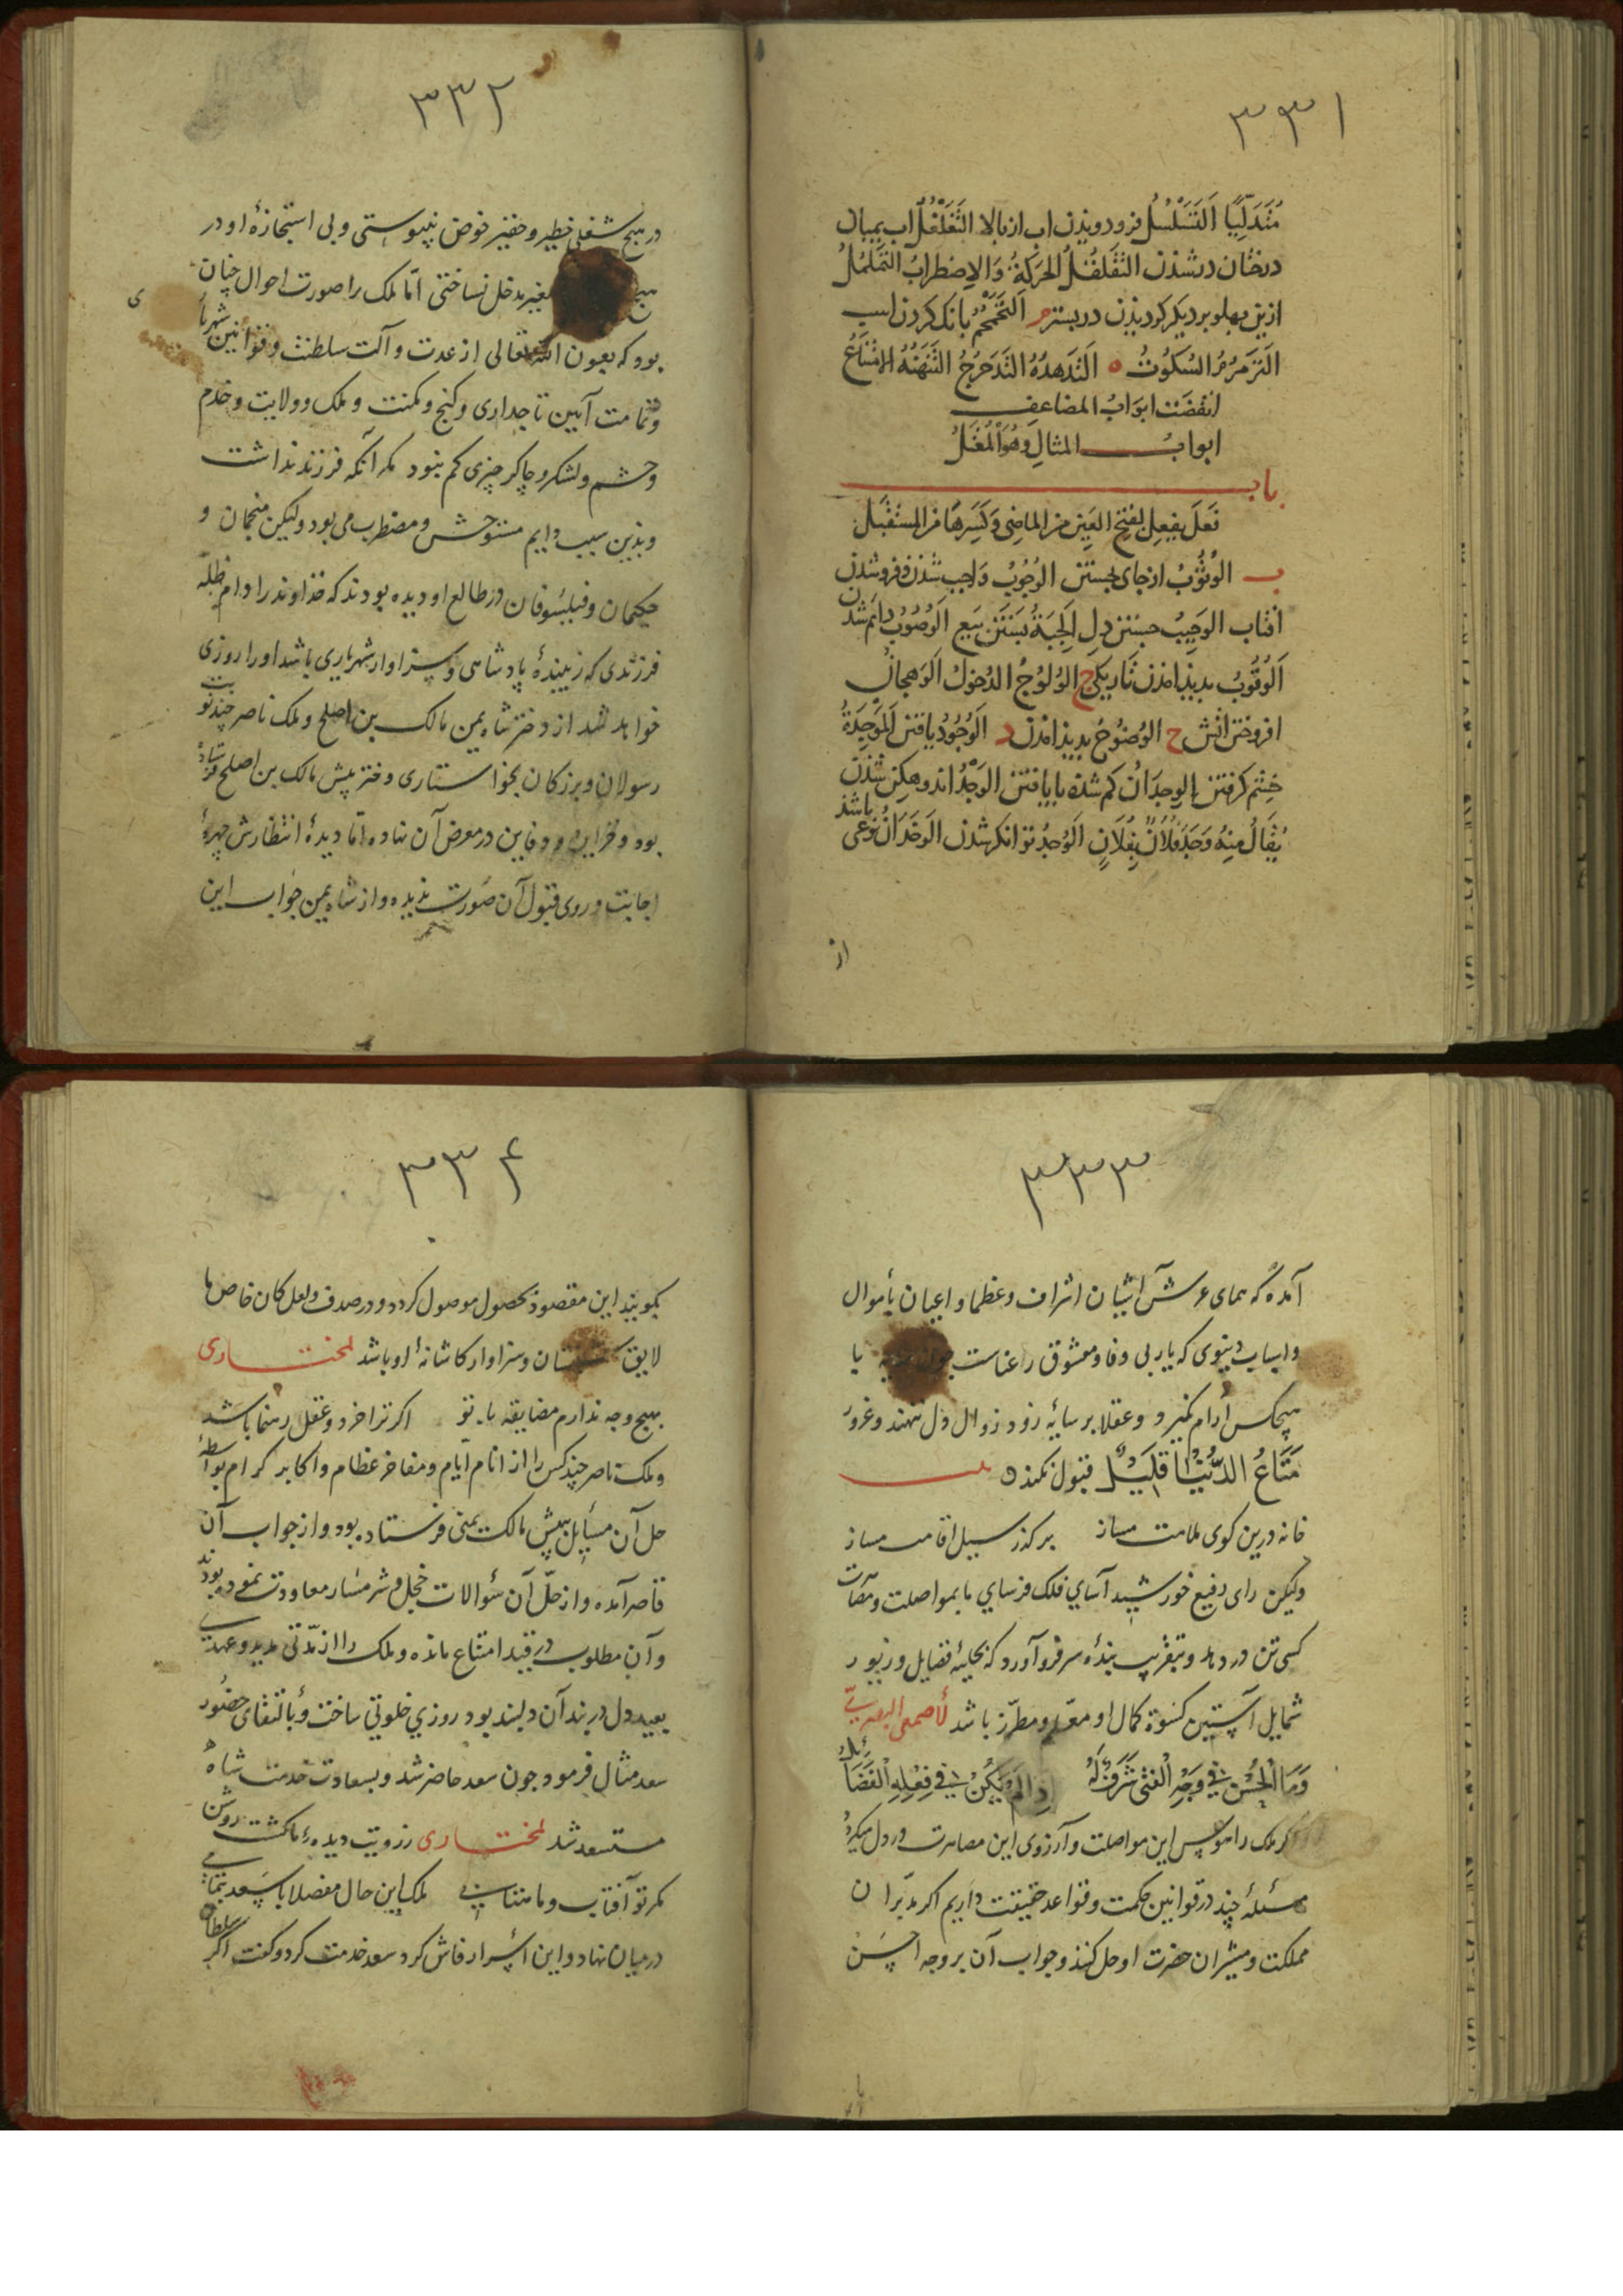 ۳۳۱
مُتَدَلِّیًا اَلتَسَلْسُلُ فرو دویذن اب از بالا التَغَلْغُلُ اب بمیان
درختان در شذن التَقَلقُلُ الحَرَکةُ وَالاِضطرابُ التَمَلمُلُ
ازین بهلو بر دیکر کردیذن در بستر م اَلتَحَمْحُمُ بانک کردن اسب
الَتَرَمرُمُ السُکُوتُ ه التَدَهدُهُ التَدَحرُجُ التَنَهنُهُ الاِمْتِنَاعُ
انقضَت ابوَابُ المضاعفِ
ابوابُ المثالِ وهُوَ الْمُعْتَلُ
باب
فَعَلَ یفعِل بفتح العَینِ مِن الماضِی وَکَسِرهَا مِن المسْتقبَل
ب الوُثوُبُ از جای بجستن الوُجُوبُ وَاجب شذن و فرو شذن
افتاب الوَجِیبُ جستن دِل اَلجِبَةُ بستَن بَیع اَلوُصُوبُ دایم شذن
اَلوُقُوبُ بدیذ امذن تاریکی ج الوُلُوجُ الدُخولُ اَلوَهجانُ
افروختن اتش ح الوُضوُحُ بدیذ امذن د اَلوُجُودُ یافتن اَلمَوجِدَةُ
خِشم کرفتن اِلوِجدَانُ کم شذه بایافتن الوَجْدُ اندوهکِن شذن
یُقالُ مِنهُ وَجَدَ فلانٌ بِفُلَانٍ اَلوُجدُ توانکر شذن الوَخَدَانُ نوعی باشذ
از
۳۳۲
در هیچ شغلی خطیر و حقیر خوض نپیوستی و بی استجازهٔ او در
هیچ تغییر مدخل نساختی امّا ملک را صورت احوال چنان
بود که بعون اللّه تعالی از عدت و آلت سلطنت و قوانین شهریاری
و تمامت آیین تاجداری و کنج و مکنت و ملک و ولایت و خدم
و حشم و لشکر و چاکر چیزی کم نبود مکر آنکه فرزند نداشت
و بذین سبب دایم مستوحش و مضطرب می بود ولیکن منجمان و
حکیمان و فیلسوفان در طالع او دیده بودند که خذاوند را دام ظلّه
فرزندی که زیبندهٔ پادشاهی و سزاوار شهریاری باشد او را روزی
خواهد شد از دختر شاه یمن مالک بن اصلح و ملک ناصر چند نوبت
رسولان و بزرکان بخواستاری دختر پیش مالک بن اصلح فرستاده
بود و خزاین و دفاین در معرض آن نهاده امّا دیدهٔ انتظارش چهرهٔ
اجابت و روی قبول آن صورت ندیده و از شاه یمن جواب این
۳۳۳
آمده که همای عرش آشیان اشراف و عظما و اعیان بأموال
و اسباب دنیوی که یار بی وفا و معشوق رعناست با
هیچکس آرام نکیرد و عقلا بر سایهٔ زود زوال دل ننهند و غرور
مَتَاعُ الدُّنْیَا قَلِیلٌ قبول نکنند ه بیت
خانه درین کوی ملامت مساز بر کذر سیل اقامت مساز
ولیکن رای رفیع خورشید آسای فلک فرسای ما بمواصلت و مصاهرت
کسی تن در دهد و بتقریب بندهٔ سر فرو آورد که بحلیهٔ فضایل و زیور
شمایل آستین کسوة کمال او معلم و مطرّز باشد لأصمعی البصریّ
وَمَا الْحُسْنُ فِی وَجْهِ الْفَتَی شَرَفٌ لَهُ اِذَا لَمْ یَکُنْ فِی فِعْلِهِ الْفَضَائِلُ
اکر ملک را هوس این مواصلت و آرزوی این مصاهرت در دل میکردد
مسئلهٔ چند در قوانین حکمت و قواعد حقیقت داریم اکر مدبّران
مملکت و مشیران حضرت او حل کنند و جواب آن بر وجه احسن
۳۳۴
بکویند این مقصود بحصول موصول کردد و در صدف و لعل کان خاص ما
لایق و سزاوار کاشانهٔ او باشد لمختاری
بهیچ وجه ندارم مضایقه با تو اکر ترا خرد و عقل رهنما باشد
و ملک ناصر چند کس را از انام ایام و مفاخر عظام و اکابر کرام بواسطهٔ
حل آن مسایل پیش مالک یمنی فرستاده بود و از جواب آن
قاصر آمده و از حلّ آن سؤالات خجل و شرمسار معاودت نموده بودند
و آن مطلوب در قید امتناع مانده و ملک را از مدّتی مدید و عهدی
بعید دل در بند آن دلبند بود روزی خلوتی ساخت و بالتقای حضور
سعد مثال فرمود جون سعد حاضر شد و بسعادت خدمت شاه
مستسعد شد لمختاری ز رویت دیده ما کشت روشن
مکر تو آفتاب و ماهتابی ملک این حال مفصلا با سعد تمامی
در میان نهاد و این اسرار فاش کرد سعد خدمت کرد و کفت اکر سلطان